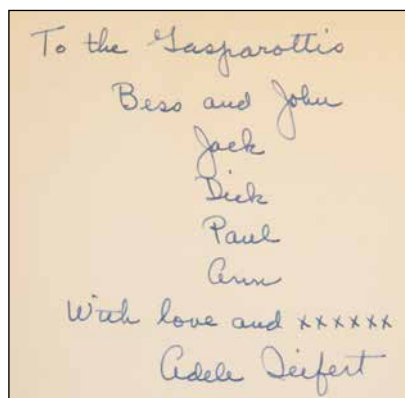 To the Gasparottis
Bess and John
Jack
Dick
Paul
Ann
With love and xxxxxx
Adele Seifert